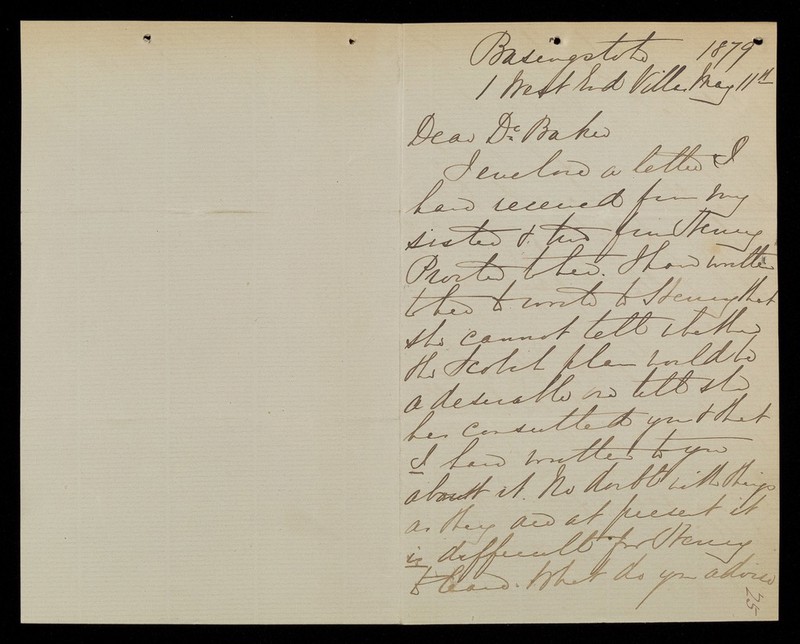 Basingstoke 1879
1 West End Villas May 11th
Dear Dr. Baker
I enclose a letter I
have received from my
sister & two from Henry
Procter to her. I have written
to her to write to Henry that
she cannot tell whether
the Scotch plan would be
a desirable one till she
has consulted you & that
I have written to you
about it. No doubt with things
as they are at present it
is difficult for Henry
to leave. What do you advise
25